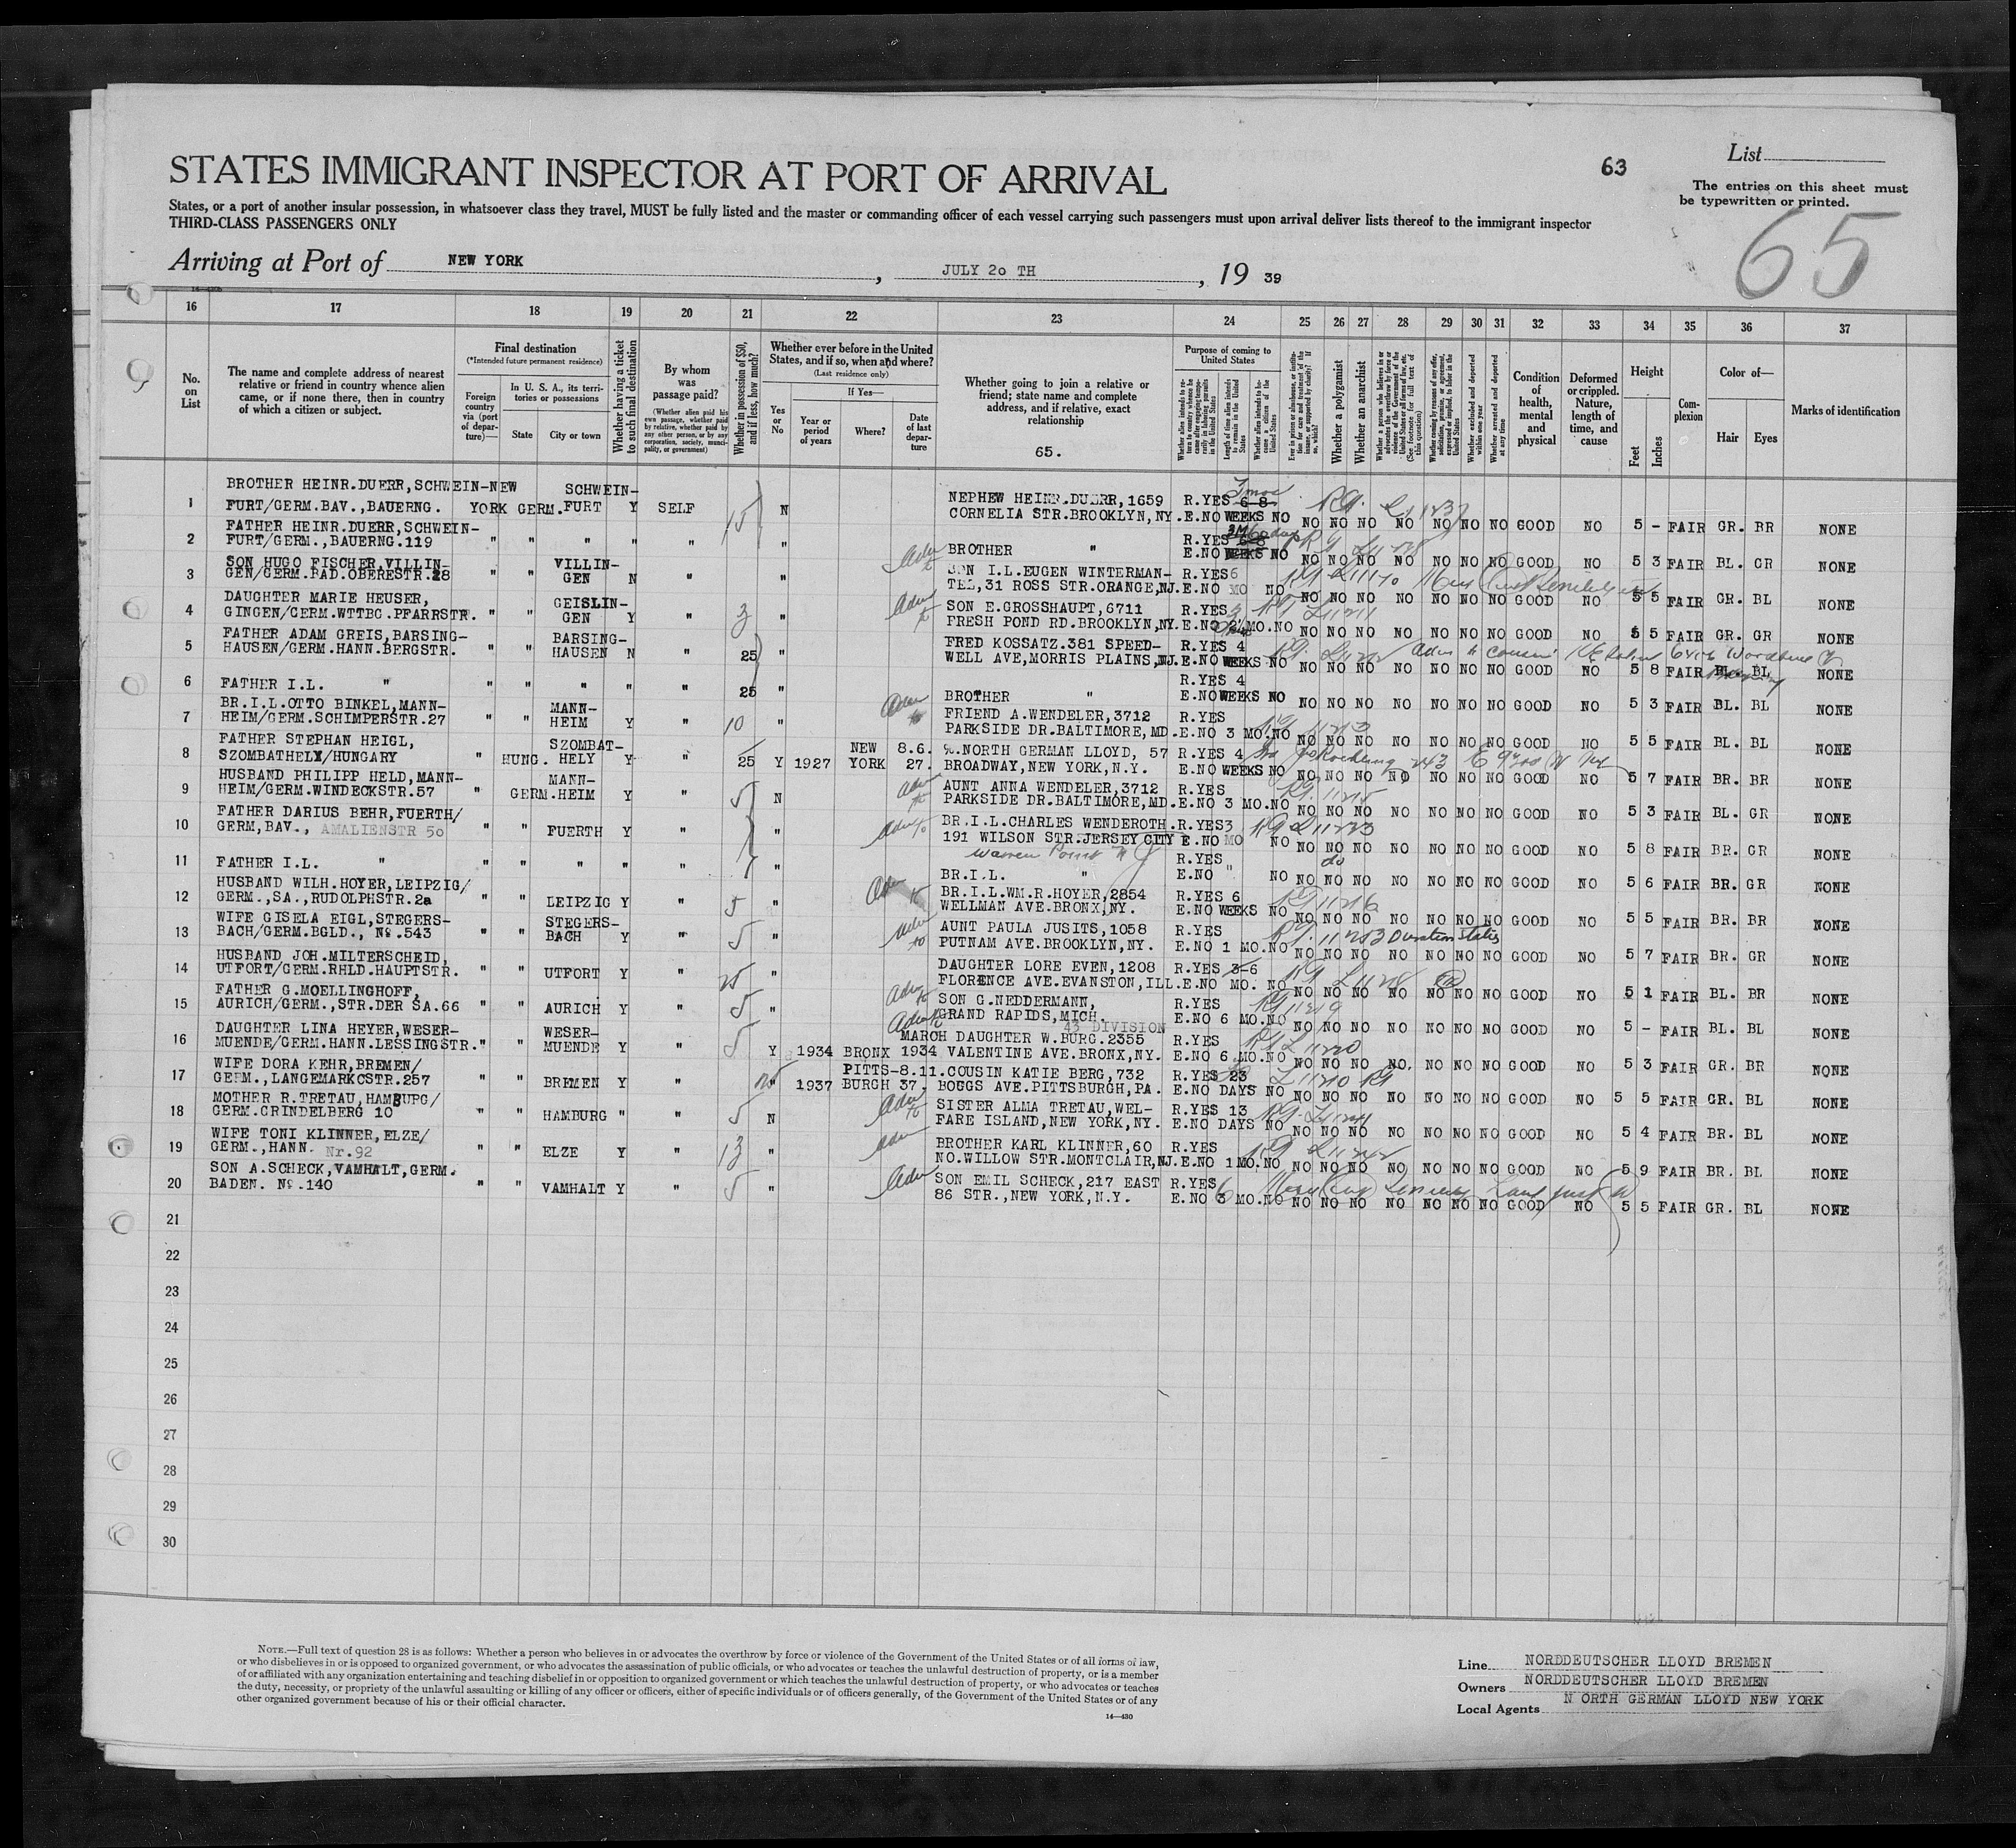 63
List
The entries on this sheet must
be typewritten or printed.
65
STATES IMMIGRANT INSPECTOR AT PORT OF ARRIVAL
States, or a port of another insular possession, in whatsoever class they travel, MUST be fully listed and the master or commanding officer of each vessel carrying such passengers must upon arrival deliver lists thereof to the immigrant inspector
THIRD-CLASS PASSENGERS ONLY
Arriving at Port of NEW YORK , JULY 20 TH , 19 39
16 17 18 19 20 21 22 23 24 25 26 27 28 29 30 31 32 33 34 35 36 37
No. on List
The name and complete address of nearest
relative or friend in country whence alien
came, or if none there, then in country
of which a citizen or subject.
Final destination
(*Intended future permanent residence)
Foreign country via (port of departure)—
In U. S. A., its territories or possessions
State
City or town
Whether having a ticket to such final destination
By whom was passage paid?
(Whether alien paid his own passage, whether paid by relative, whether paid by any other person, or by any corporation, society, municipality, or government)
Whether in possession of $50, and if less, how much?
Whether ever before in the United States, and if so, when and where?
(Last residence only)
Yes or No
If Yes—
Year or period of years
Where?
Date of last departure
Whether going to join a relative or
friend; state name and complete
address, and if relative, exact
relationship
65.
Purpose of coming to United States
Length of time alien intends to remain in the United States
Whether a polygamist
Whether an anarchist
Whether arrested and deported at any time
Condition of health, mental and physical
Deformed or crippled. Nature, length of time, and cause
Height
Feet
Inches
Complexion
Color of—
Hair
Eyes
Marks of identification
1 BROTHER HEINR.DUERR,SCHWEIN-NEW SCHWEIN- NEPHEW HEINR.DUERR,1659 R.YES 6-8
FURT/GERM.BAV.,BAUERNG. YORK GERM.FURT Y SELF 15 N CORNELIA STR.BROOKLYN,NY. E.NO WEEKS NO NO NO NO NO NO NO NO GOOD NO 5 - FAIR GR. BR NONE
2 FATHER HEINR.DUERR,SCHWEIN- R.YES 6-8
FURT/GERM.,BAUERNG.119 " " " " " " BROTHER " E.NO WEEKS NO NO NO NO NO NO NO NO GOOD NO 5 3 FAIR BL. GR NONE
3 SON HUGO FISCHER,VILLIN- VILLIN- SON I.L.EUGEN WINTERMAN- R.YES 6
GEN/GERM.BAD.OBERESTR.28 " " GEN N " " TEL,31 ROSS STR.ORANGE,NJ. E.NO MO NO NO NO NO NO NO NO NO GOOD NO 5 5 FAIR GR. BL NONE
4 DAUGHTER MARIE HEUSER, GEISLIN- SON E.GROSSHAUPT,6711 R.YES
GINGEN/GERM.WTTBG.PFARRSTR. " " GEN Y " 3 " FRESH POND RD.BROOKLYN,NY. E.NO 2 MO.NO NO NO NO NO NO NO NO GOOD NO 5 5 FAIR GR. GR NONE
5 FATHER ADAM GREIS,BARSING- BARSING- FRED KOSSATZ.381 SPEED- R.YES 4
HAUSEN/GERM.HANN.BERGSTR. " " HAUSEN N " 25 " WELL AVE,MORRIS PLAINS,NJ. E.NO WEEKS NO NO NO NO NO NO NO NO GOOD NO 5 8 FAIR BL. BL NONE
6 FATHER I.L. " " " " " " 25 " BROTHER " R.YES 4
E.NO WEEKS NO NO NO NO NO NO NO NO GOOD NO 5 3 FAIR BL. BL NONE
7 BR.I.L.OTTO BINKEL,MANN- MANN- FRIEND A.WENDELER,3712 R.YES
HEIM/GERM.SCHIMPERSTR.27 " " HEIM Y " 10 " PARKSIDE DR.BALTIMORE,MD. E.NO 3 MO.NO NO NO NO NO NO NO NO GOOD NO 5 5 FAIR BL. BL NONE
8 FATHER STEPHAN HEIGL, SZOMBAT- NEW 8.6. %.NORTH GERMAN LLOYD, 57 R.YES 4
SZOMBATHELY/HUNGARY " HUNG. HELY Y " 25 Y 1927 YORK 27. BROADWAY,NEW YORK,N.Y. E.NO WEEKS NO NO NO NO NO NO NO NO GOOD NO 5 7 FAIR BR. BR NONE
9 HUSBAND PHILIPP HELD,MANN- MANN- AUNT ANNA WENDELER,3712 R.YES
HEIM/GERM.WINDECKSTR.57 " GERM.HEIM Y " 5 N PARKSIDE DR.BALTIMORE,MD. E.NO 3 MO.NO NO NO NO NO NO NO NO GOOD NO 5 3 FAIR BL. GR NONE
10 FATHER DARIUS BEHR,FUERTH/ BR.I.L.CHARLES WENDEROTH. R.YES 3
GERM,BAV., AMALIENSTR 50 " " FUERTH Y " " 191 WILSON STR.JERSEY CITY E.NO MO NO NO NO NO NO NO NO NO GOOD NO 5 8 FAIR BR. GR NONE
11 FATHER I.L. " " " " " " " BR.I.L. " R.YES "
E.NO " NO NO NO NO NO NO NO NO GOOD NO 5 6 FAIR BR. GR NONE
12 HUSBAND WILH.HOYER,LEIPZIG/ BR.I.L.WM.R.HOYER,2854 R.YES 6
GERM.,SA.,RUDOLPHSTR.2a " " LEIPZIG Y " 5 " WELLMAN AVE.BRONX,NY. E.NO WEEKS NO NO NO NO NO NO NO NO GOOD NO 5 5 FAIR BR. BR NONE
13 WIFE GISELA EIGL,STEGERS- STEGERS- AUNT PAULA JUSITS,1058 R.YES
BACH/GERM.BGLD., No.543 " " BACH Y " 5 " PUTNAM AVE.BROOKLYN,NY. E.NO 1 MO.NO NO NO NO NO NO NO NO GOOD NO 5 7 FAIR BR. GR NONE
14 HUSBAND JOH.MILTERSCHEID, DAUGHTER LORE EVEN,1208 R.YES 3-6
UTFORT/GERM.RHLD.HAUPTSTR. " " UTFORT Y " 25 FLORENCE AVE.EVANSTON,ILL. E.NO MO. NO NO NO NO NO NO NO NO GOOD NO 5 1 FAIR BL. BR NONE
15 FATHER G.MOELLINGHOFF, SON G.NEDDERMANN, R.YES
AURICH/GERM.,STR.DER SA.66 " " AURICH Y " 5 " GRAND RAPIDS,MICH. E.NO 6 MO.NO NO NO NO NO NO NO NO GOOD NO 5 - FAIR BL. BL NONE
43 DIVISION
16 DAUGHTER LINA HEYER,WESER- WESER- MARCH DAUGHTER W.BURG.2355 R.YES
MUENDE/GERM.HANN.LESSINGSTR. " " MUENDE Y " 5 Y 1934 BRONX 1934 VALENTINE AVE.BRONX,NY. E.NO 6 MO.NO NO NO NO NO NO NO NO GOOD NO 5 3 FAIR GR. BR NONE
17 WIFE DORA KEHR,BREMEN/ PITTS- 8.11. COUSIN KATIE BERG,732 R.YES 23
GERM.,LANGEMARKSTR.257 " " BREMEN Y " " 1937 BURGH 37. BOGGS AVE.PITTSBURGH,PA. E.NO DAYS NO NO NO NO NO NO NO NO GOOD NO 5 5 FAIR GR. BL NONE
18 MOTHER R.TRETAU,HAMBURG/ SISTER ALMA TRETAU,WEL- R.YES 13
GERM.GRINDELBERG 10 " " HAMBURG " " 5 N FARE ISLAND,NEW YORK,NY. E.NO DAYS NO NO NO NO NO NO NO NO GOOD NO 5 4 FAIR BR. BL NONE
19 WIFE TONI KLINNER,ELZE/ BROTHER KARL KLINNER,60 R.YES
GERM.,HANN. Nr.92 " " ELZE Y " 13 " NO.WILLOW STR.MONTCLAIR,NJ. E.NO 1 MO.NO NO NO NO NO NO NO NO GOOD NO 5 9 FAIR BR. BL NONE
20 SON A.SCHECK,VAMHALT,GERM. SON EMIL SCHECK,217 EAST R.YES
BADEN. No.140 " " VAMHALT Y " 5 " 86 STR.,NEW YORK,N.Y. E.NO 3 MO.NO NO NO NO NO NO NO NO GOOD NO 5 5 FAIR GR. BL NONE
21
22
23
24
25
26
27
28
29
30
NOTE.—Full text of question 28 is as follows: Whether a person who believes in or advocates the overthrow by force or violence of the Government of the United States or of all forms of law,
or who disbelieves in or is opposed to organized government, or who advocates the assassination of public officials, or who advocates or teaches the unlawful destruction of property, or is a member
of or affiliated with any organization entertaining and teaching disbelief in or opposition to organized government or which teaches the unlawful destruction of property, or who advocates or teaches
the duty, necessity, or propriety of the unlawful assaulting or killing of any officer or officers, either of specific individuals or of officers generally, of the Government of the United States or of any
other organized government because of his or their official character.
14—430
Line NORDDEUTSCHER LLOYD BREMEN
Owners NORDDEUTSCHER LLOYD BREMEN
Local Agents NORTH GERMAN LLOYD NEW YORK